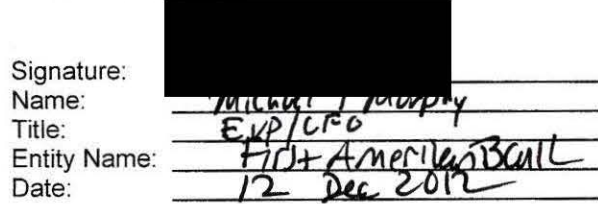 Signature:
Name: Michael J Murphy
Title: EVP/CFO
Entity Name: First American Bank
Date: 12 Dec 2012